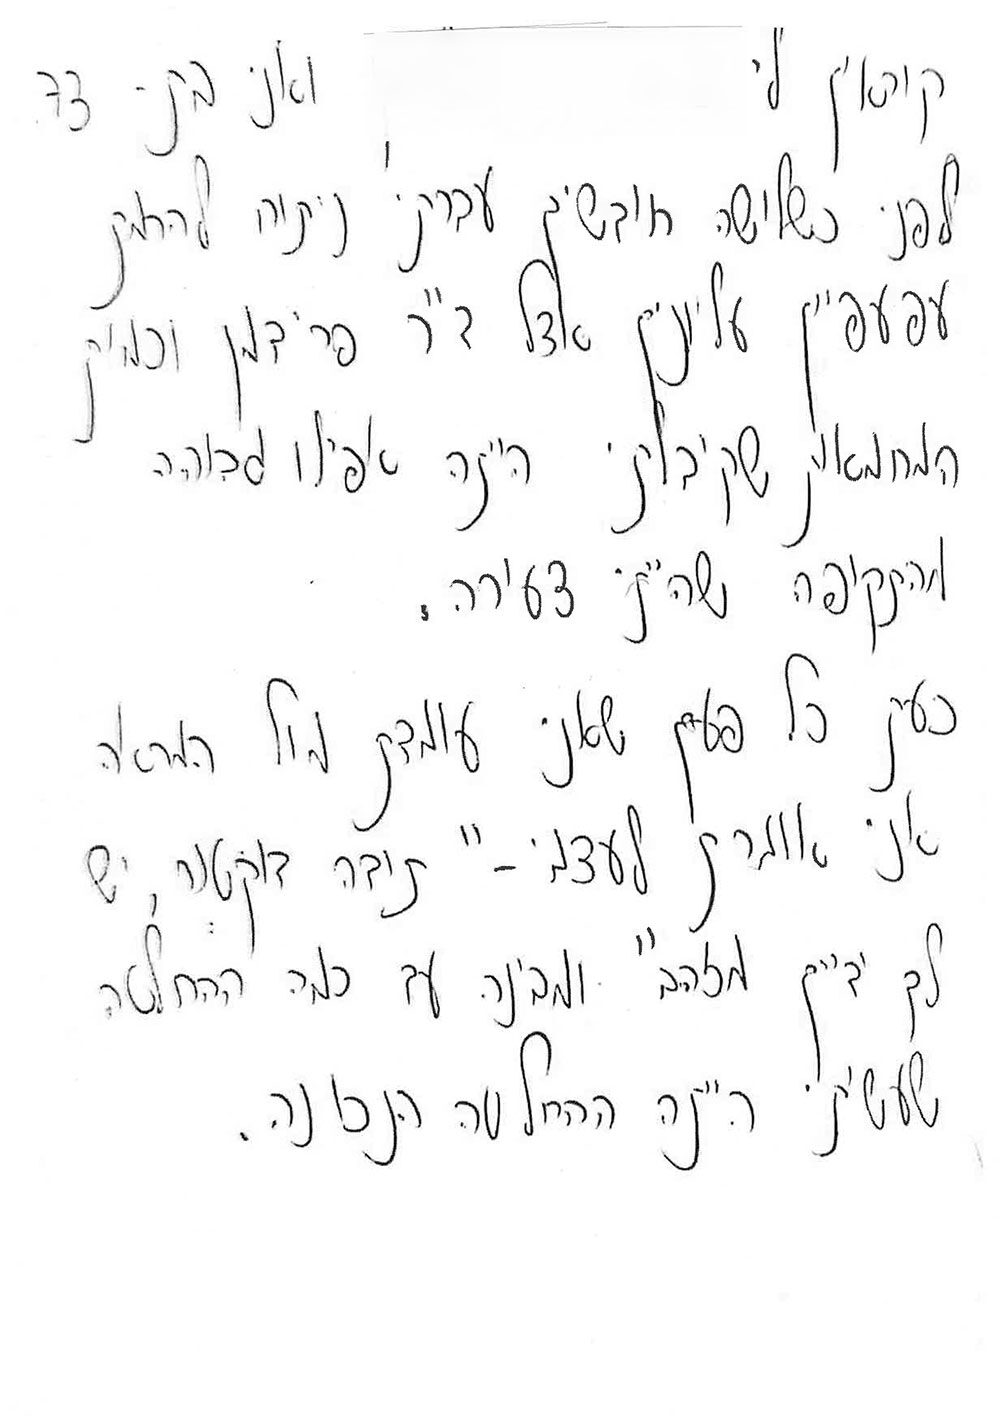 קוראים לי ואני בת- 73.
לפני כשלושה חודשים עברתי ניתוח להרמת
עפעפיים עליונים אצל ד"ר פרידמן וכמות
המחמאות שקיבלתי היתה אפילו גבוהה
מהתקופה שהייתי צעירה.
כעת כל פעם שאני עומדת מול המראה
אני אומרת לעצמי - "תודה דוקטור, יש
לך ידיים מזהב" ומבינה עד כמה ההחלטה
שעשיתי היתה ההחלטה הנכונה.